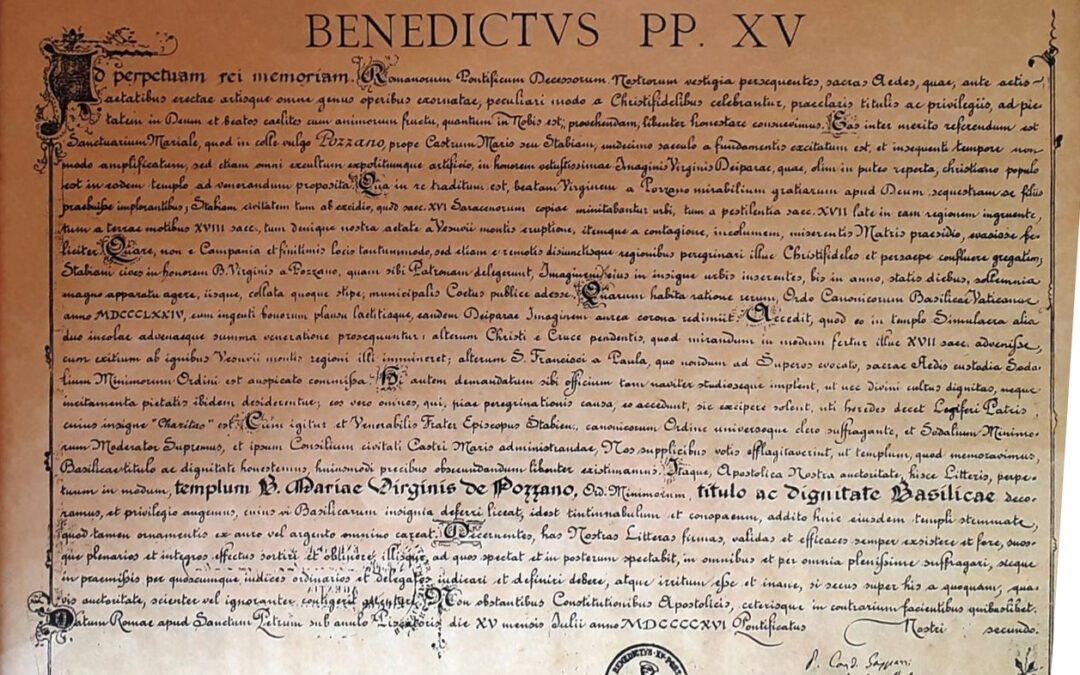 BENEDICTVS PP. XV
Ad perpetuam rei memoriam. Romanorum Pontificum Decessorum Nostrorum vestigia persequentes, sacras Aedes, quae, ante actis
aetatibus erectae artisque omne genus operibus exornatae, peculiari modo a Christifidelibus celebrantur, praeclaris titulis ac privilegiis, ad pie-
tatem in Deum et beatos caelites cum animorum fructu, quantum in Nobis est, provehendam, libenter honestare consuevimus. Eas inter merito referendum est
Sanctuarium Mariale, quod in colle vulgo Pozzano, prope Castrum Maris seu Stabiam, undecimo saeculo a fundamentis excitatum est, et insequenti tempore non
modo amplificatum, sed etiam omni excultum expolitumque artificio, in honorem vetustissimae Imaginis Virginis Deiparae, quae, olim in puteo reperta, christiano populo
est in eodem templo ad venerandum proposita. Qua in re traditum est, beatam Virginem a Pozzano mirabilium gratiarum apud Deum sequestram se filiis
praebuisse implorantibus; Stabiem civitatem tum ab excidio, quod saec. XVI Saracenorum copiae minitabantur urbi, tum a pestilentia saec. XVII late in eam regionem ingruente,
tum a terrae motibus XVIII saec., tum denique nostra aetate a Vesuvii montis eruptione, itemque a contagione, incolumem, miserentis Matris praesidio, evasisse fe-
liciter. Quare, non e Campania et finitimis locis tantummodo, sed etiam e remotis disiunctisque regionibus peregrinari illuc Christifideles et persaepe confluere gregatim;
Stabiani cives in honorem B. Virginis a Pozzano, quam sibi Patronam delegerunt, Imaginem eius in insigne urbis inserentes, bis in anno, statis diebus, sollemnia
magno apparatu agere, iisque, collata quoque stipe, municipalis Coetus publice adesse. Quarum habita ratione rerum, Ordo Canonicorum Basilicae Vaticanae
anno MDCCCLXXIV, cum ingenti bonorum plausu laetitiaque, eandem Deiparae Imaginem aurea corona redimiit. Accedit, quod eo in templo Simulacra alia
duo incolae advenaeque summa veneratione prosequuntur: alterum Christi e Cruce pendentis, quod mirandum in modum fertur illuc XVII saec. advenisse,
cum exitium ab ignibus Vesuvii montis regioni illi immineret; alterum S. Francisci a Paula, quo nondum ad Superos evocato, sacrae Aedis custodia Soda-
lium Minimorum Ordini est auspicato commissa. Hi autem demandatum sibi officium tam naviter studioseque implent, ut nec divini cultus dignitas, neque
incitamenta pietatis ibidem desiderentur; eos vero omnes, qui, piae peregrinationis causa, eo accedunt, sic excipere solent, uti heredes decet Legiferi Patris,
cuius insigne "Charitas" est. Cum igitur et Venerabilis Frater Episcopus Stabien., canonicorum Ordine universoque clero suffragante, et Sodalium Minimo-
rum Moderator Supremus, et ipsum Consilium civitati Castri Maris administrandae, Nos supplicibus votis efflagitaverint, ut templum, quod memoravimus,
Basilicae titulo ac dignitate honestemus, huiusmodi precibus obsecundandum libenter existimamus. Itaque, Apostolica Nostra auctoritate, hisce Litteris, perpe-
tuum in modum, templum B. Mariae Virginis de Pozzano, Ord. Minimorum, titulo ac dignitate Basilicae deco-
ramus, et privilegio augemus, cuius vi Basilicarum insignia deferri liceat, idest tintinnabulum et conopaeum, addito huic eiusdem templi stemmate,
quod tamen ornamentis ex auro vel argento omnino careat. Decernentes, has Nostras Litteras firmas, validas et efficaces semper exsistere et fore, suos-
que plenarios et integros effectus sortiri et obtinere, illisque, ad quos spectat et in posterum spectabit, in omnibus et per omnia plenissime suffragari, sicque
in praemissis per quoscumque iudices ordinarios et delegatos iudicari et definiri debere, atque irritum esse et inane, si secus super his a quoquam, qua-
vis auctoritate, scienter vel ignoranter contigerit attentari. Non obstantibus Constitutionibus Apostolicis, ceterisque in contrarium facientibus quibuslibet.
Datum Romae apud Sanctum Petrum sub annulo Piscatoris die XV mensis Julii anno MDCCCCXVI Pontificatus Nostri secundo.
BENEDICTVS XV PONT
P. Card. Gasparri